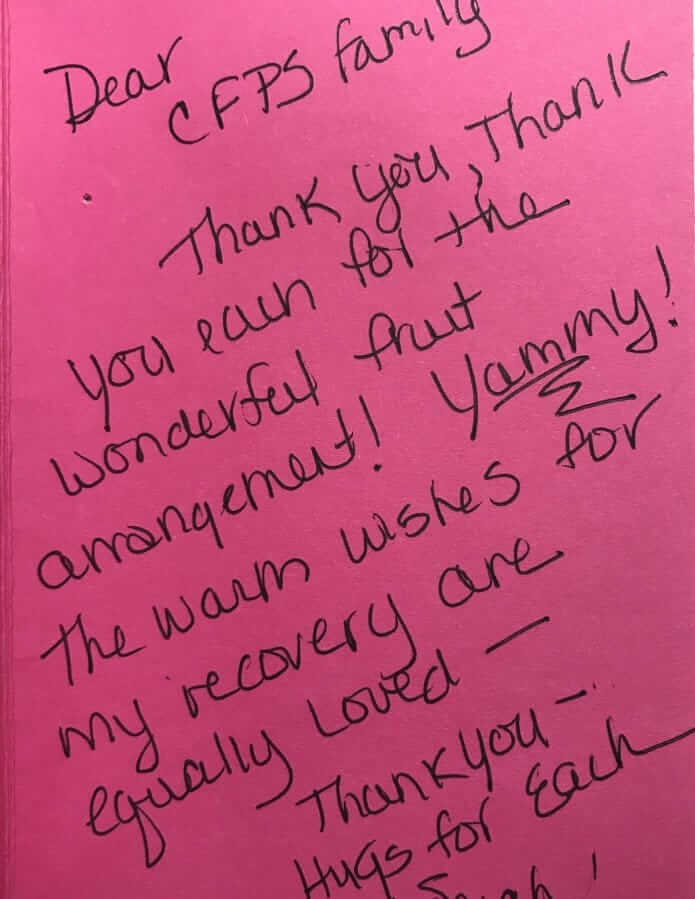 Dear
CFPS family
Thank you, Thank
you each for the
wonderful fruit
arrangement! Yammy!
The warm wishes for
my recovery are
equally Loved —
Thank you —
Hugs for Each